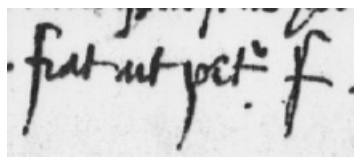 . fiat ut petʳ f .